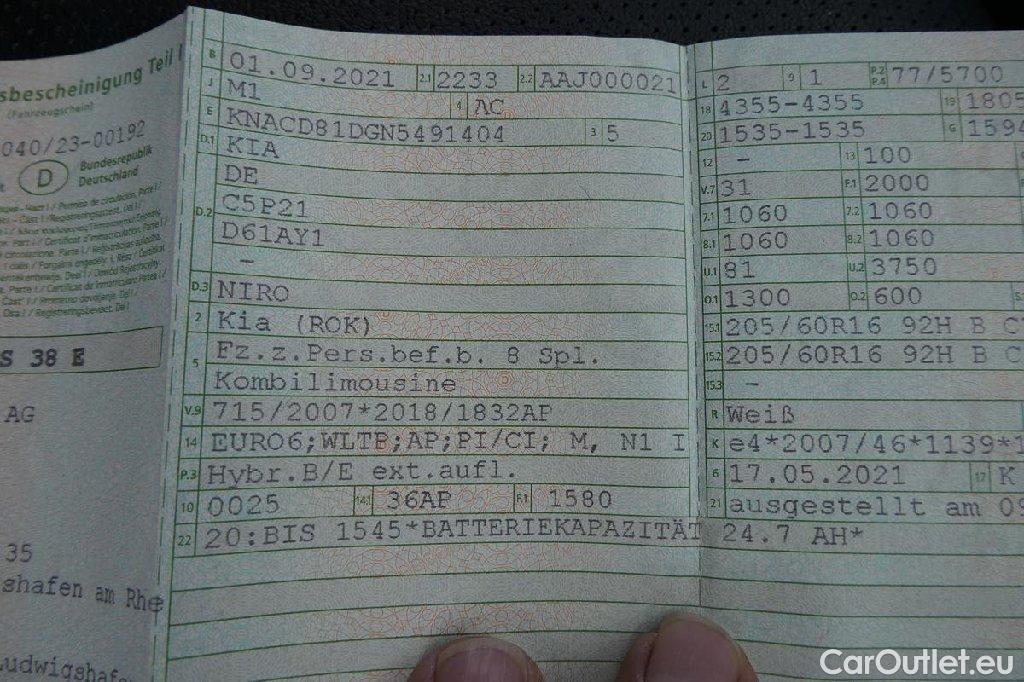 sbescheinigung Teil I
(Fahrzeugschein)
040/23-00192
D Bundesrepublik
Deutschland
S 38 E
AG
35
shafen am Rhe
udwigshafe
B 01.09.2021 2.1 2233 2.2 AAJ000021
J M1 4 AC
E KNACD81DGN5491404 3 5
D.1 KIA
DE
D.2 C5P21
D61AY1
-
D.3 NIRO
2 Kia (ROK)
5 Fz.z.Pers.bef.b. 8 Spl.
Kombilimousine
V.9 715/2007*2018/1832AP
14 EURO6;WLTP;AP;PI/CI; M, N1 I
P.3 Hybr.B/E ext.aufl.
10 0025 14.1 36AP F.1 1580
22 20:BIS 1545*BATTERIEKAPAZITÄT 24.7 AH*
L 2 9 1 P.2 P.4 77/5700
18 4355-4355 19 1805
20 1535-1535 G 1594
12 - 13 100
V.7 31 F.1 2000
7.1 1060 7.2 1060
8.1 1060 8.2 1060
U.1 81 U.2 3750
O.1 1300 O.2 600 S.
15.1 205/60R16 92H B C
15.2 205/60R16 92H B C
15.3 -
R Weiß
K e4*2007/46*1139*1
6 17.05.2021 17 K
21 ausgestellt am 09
CarOutlet.eu